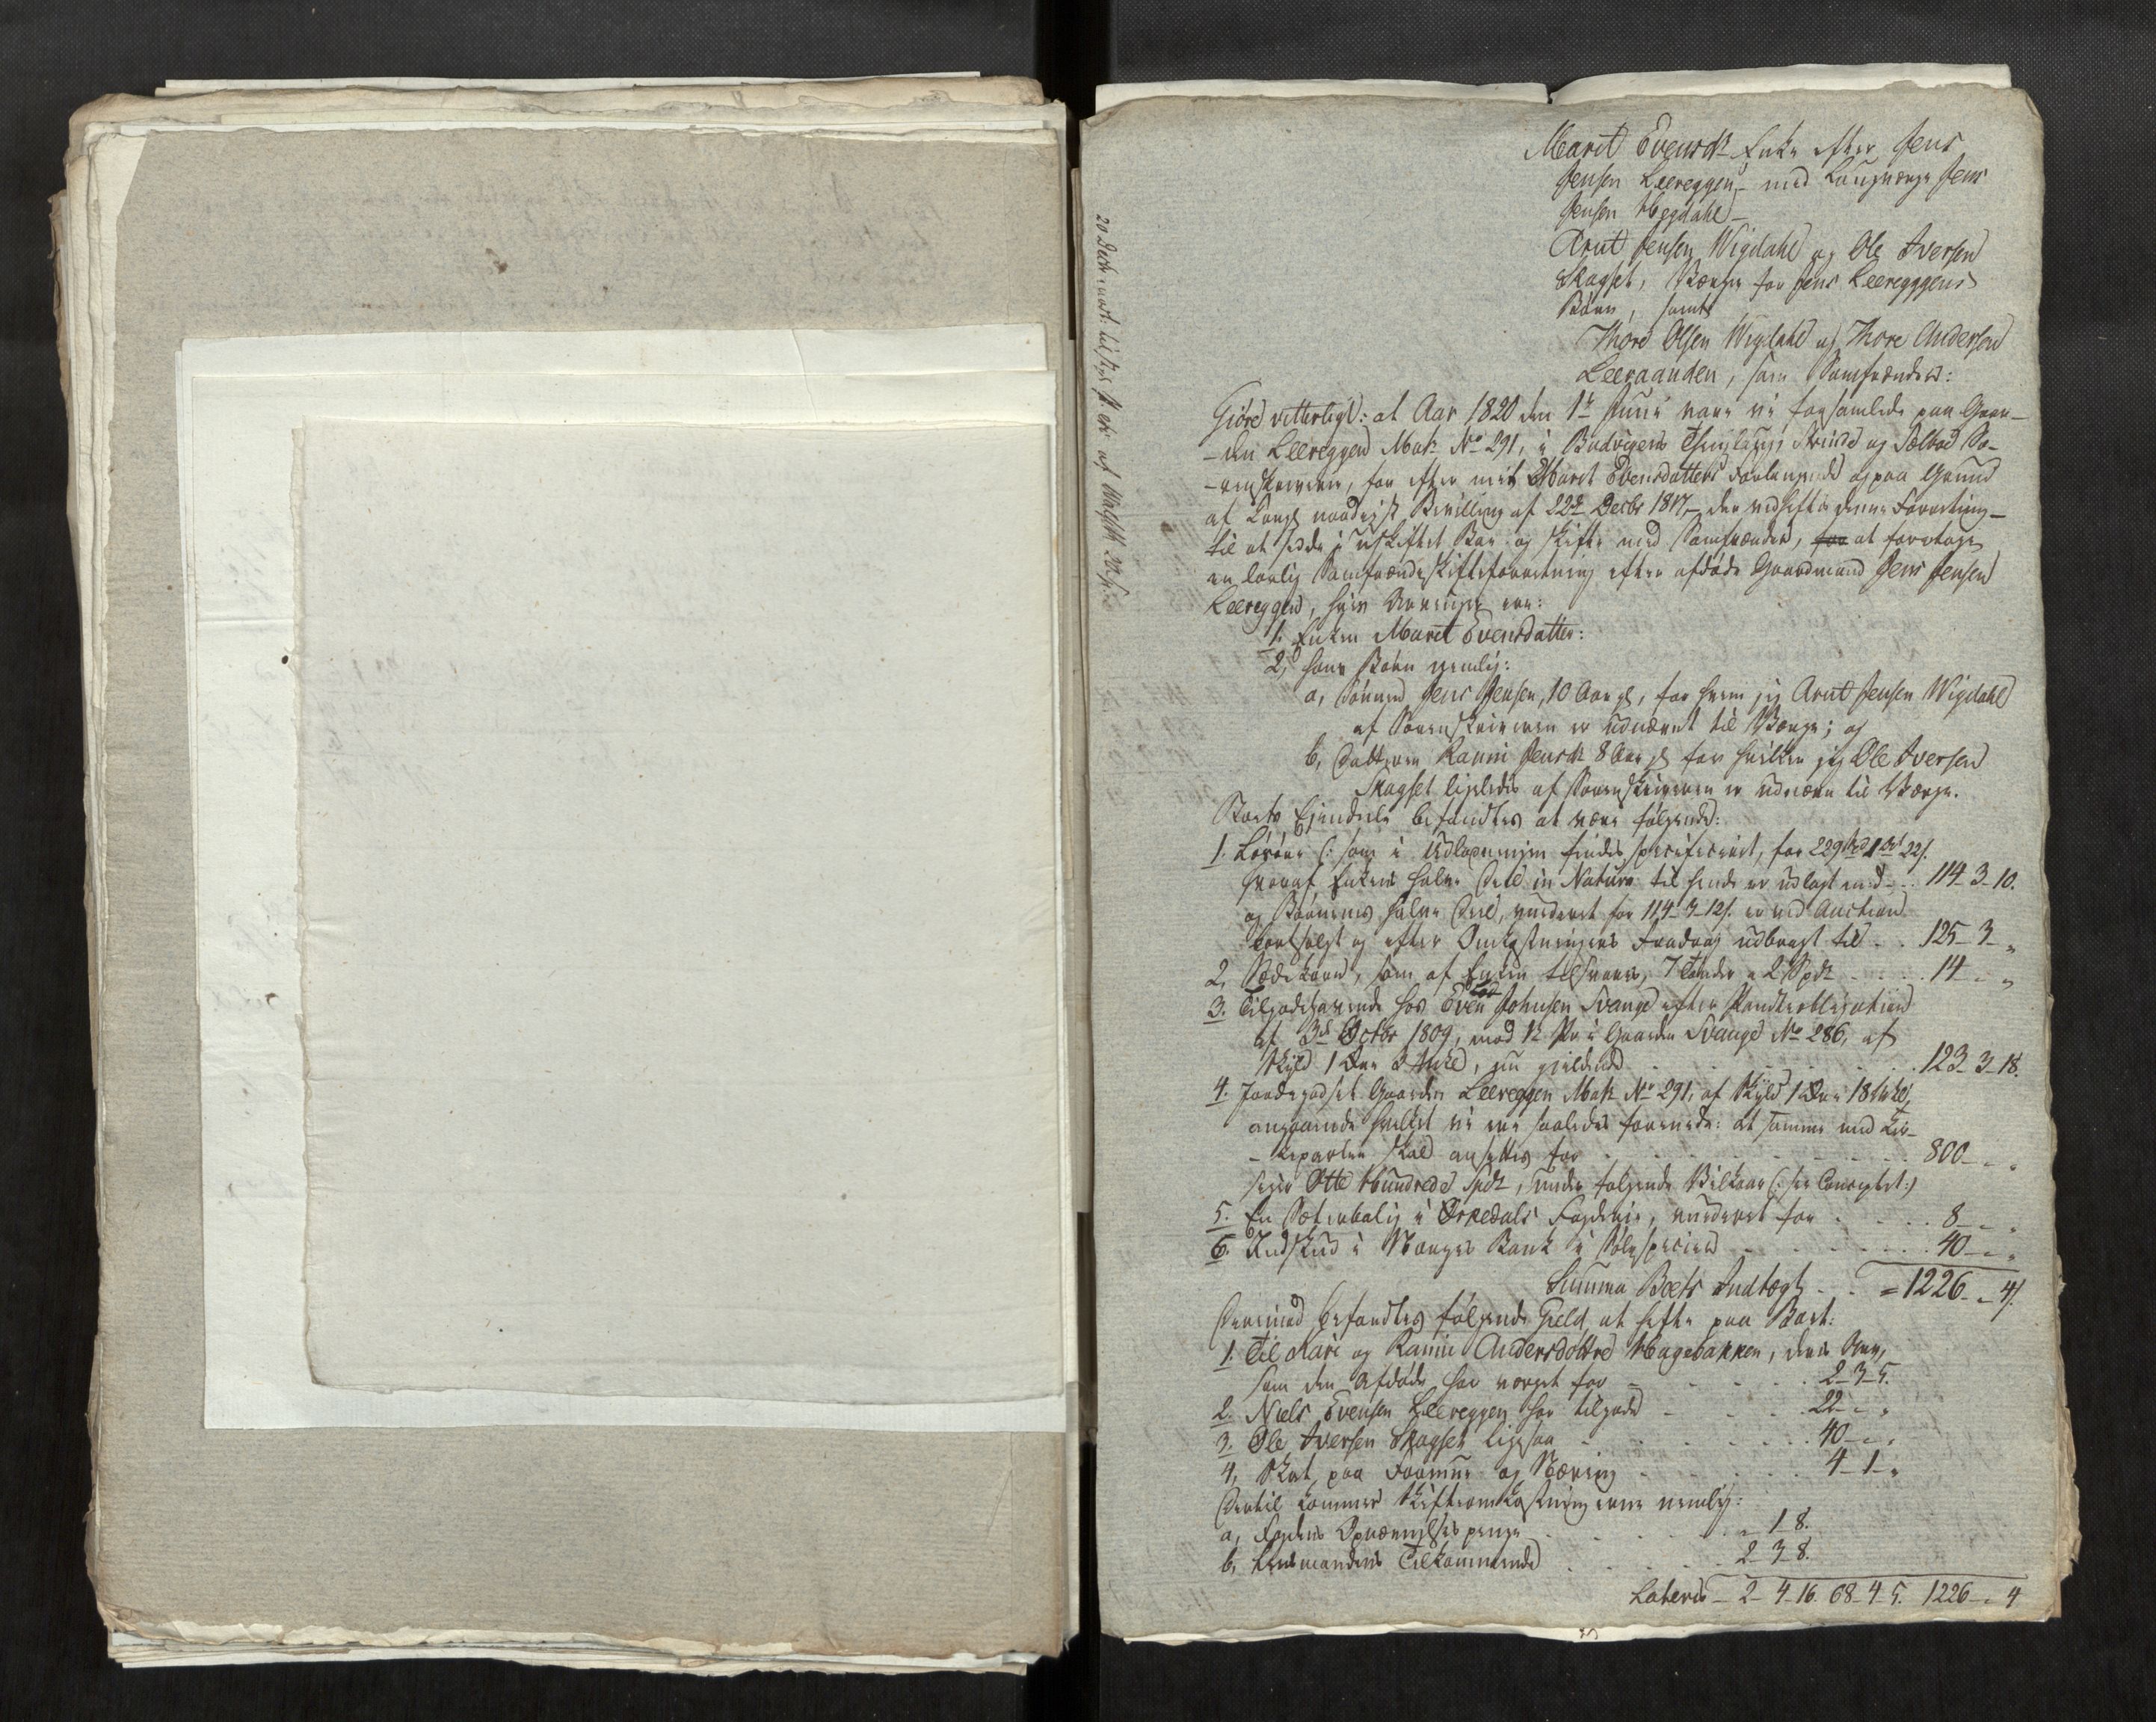 Marit Evensdr Enke efter Jens
Jensen Leereggen, med Laugværge Jens
Jensen Heggdahl -
Arnt Jensen Wigdahl og Ole Iversen
Skagset, Værger for Jens Leeregggens
Børn, samt
Thore Olsen Wigdahl og Thore Andersen
Leeraanden, som Samfrænder:
Giøre vitterligt: at Aar 1820 den 1te Juni vare vi forsamlede paa Gaar-
-den Leereggen Matr No 291, i Budvigens Thinglaug Strinde og Selboe So-
-renskriverie, for efter mit Marit Evensdatters Forlangende og paa Grund
af Kongl naadigst Bevilling af 22de Decbr 1817, - der vedheftes denne Forretning -
til at sidde i uskiftet Boe og skifte med Samfrænder, for at foretage
en lovlig Samfrændeskifteforretning efter afdøde Gaardmand Jens Jensen
Leereggen, hvis Arvinger ere:
1. Enken Marit Evensdatter:
2, hans Børn nemlig:
a, Sønnen Jens Jensen, 10 Aar gl, for hvem jeg Arnt Jensen Wigdahl
af Sorenskriveren er udnævnt til Værge; og
b, Datteren Ranni Jensdr 8 Aar gl for hvilken jeg Ole Iversen
Skagset ligeledes af Sorenskriveren er udnævn til Værge.
Boets Eiendeele befandtes at være følgende:
1. Løsøre (: som i Udlægningen findes specificeret, for 229 Spd 1 Ort 22 s.
hvoraf Enkens halve Deel in Natura til hende er udlagt med . . 114-3-10.
og Børnenes halve Deel, vurderet for 114-3-12 s. er ved Auction
bortsolgt og efter Omkostningers Fradrag udbragt til . . 125-3-"
2, Sædekorn, som af Enken tilsvares, 7 Tønder a 2 Spdr . . . 14 - "
3. Tilgodehavende hos Even Johnsen Svange efter Pandteobligation
af 3die Octbr 1809, med 1te Pr. i Gaarden Svange No 286, af
Skyld 1 Øre 3 Mkl, nu gieldende . . . 123-3-18.
4. Jordegodset Gaarden Leereggen Matr No 291, af Skyld 1 Øre 18 Mkl,
angaaende hvilket vi ere saaledes forenede: at samme med Kir-
-keparten skal ansettes for . . . 800 - "
siger Otte Hundrede Spdr, under følgende Vilkaar (: see Conceptet :)
5. En Sæterbolig i Ørkedals Fogderie, vurderet for . . . 8 - "
6. Indskud i Norges Bank i Sølvspecier . . . 40 - "
Summa Boets Indtægt . . = 1226 - 4 s.
Derimod befandtes følgende Gield at hefte paa Boet:
1. Til Mari og Ranni Andersdøttre Hagebakken, deres Arv,
som den Afdøde har værget for . . . 2-3-5.
2. Niels Evensen Leereggen har tilgode . . . 22 - "
3. Ole Iversen Skagset ligesaa . . . 40 - "
4, Skat paa Formue og Næring . . . 4-1-"
Dertil kommer Skifteomkostningerne nemlig:
a, Fogdens Opnævnelsespenge . . . " 1-8.
b, Lensmandens Tilkommende . . . 2-3-8.
Lateris - 2-4-16. 68-4-5. 1226 - 4